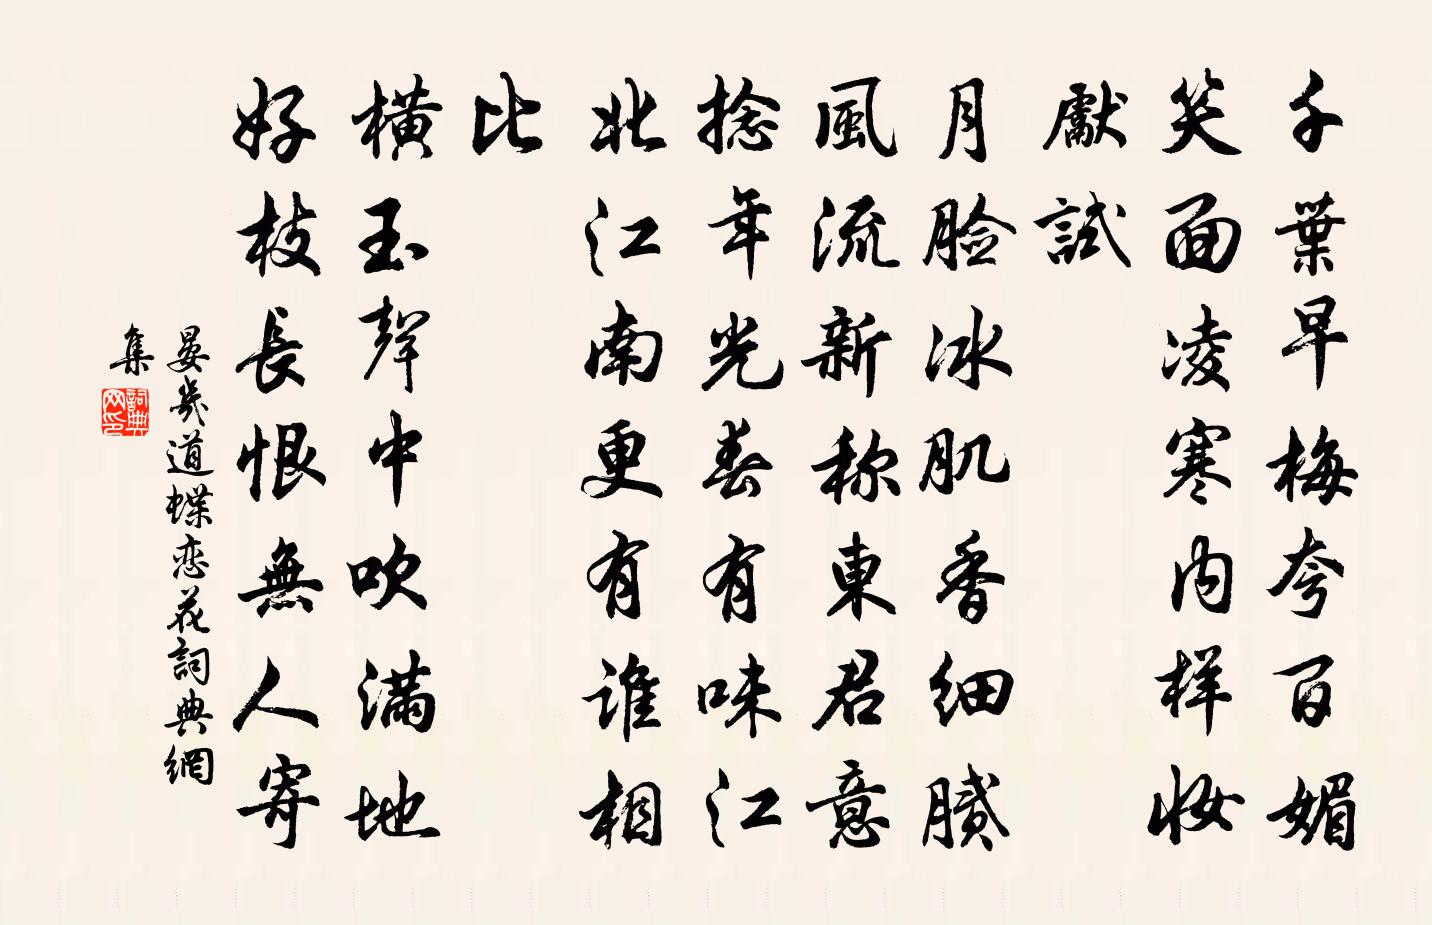 千葉早梅夸百媚
笑面凌寒内样妝
獻試
月脸冰肌香细腻
風流新称東君意
捻年光春有味江
北江南更有谁相
比
横玉聲中吹满地
好枝長恨無人寄
晏幾道蝶恋花詞典網
集
詞典网印